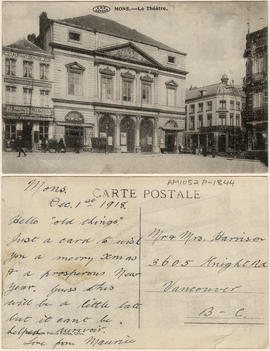 MONS.—Le Théâtre.
AM1052 P-1844
CARTE POSTALE
Mons.
Dec. 1st 1918.
Hello "old things"
Just a card to wish
you a merry Xmas
& a prosperous New
Year. Guess this
will be a little late
but it cant be
helped. Aurevoir.
Love from Maurice
Mr & Mrs. Harrison
3605 Knight Rd
Vancouver
B-C.